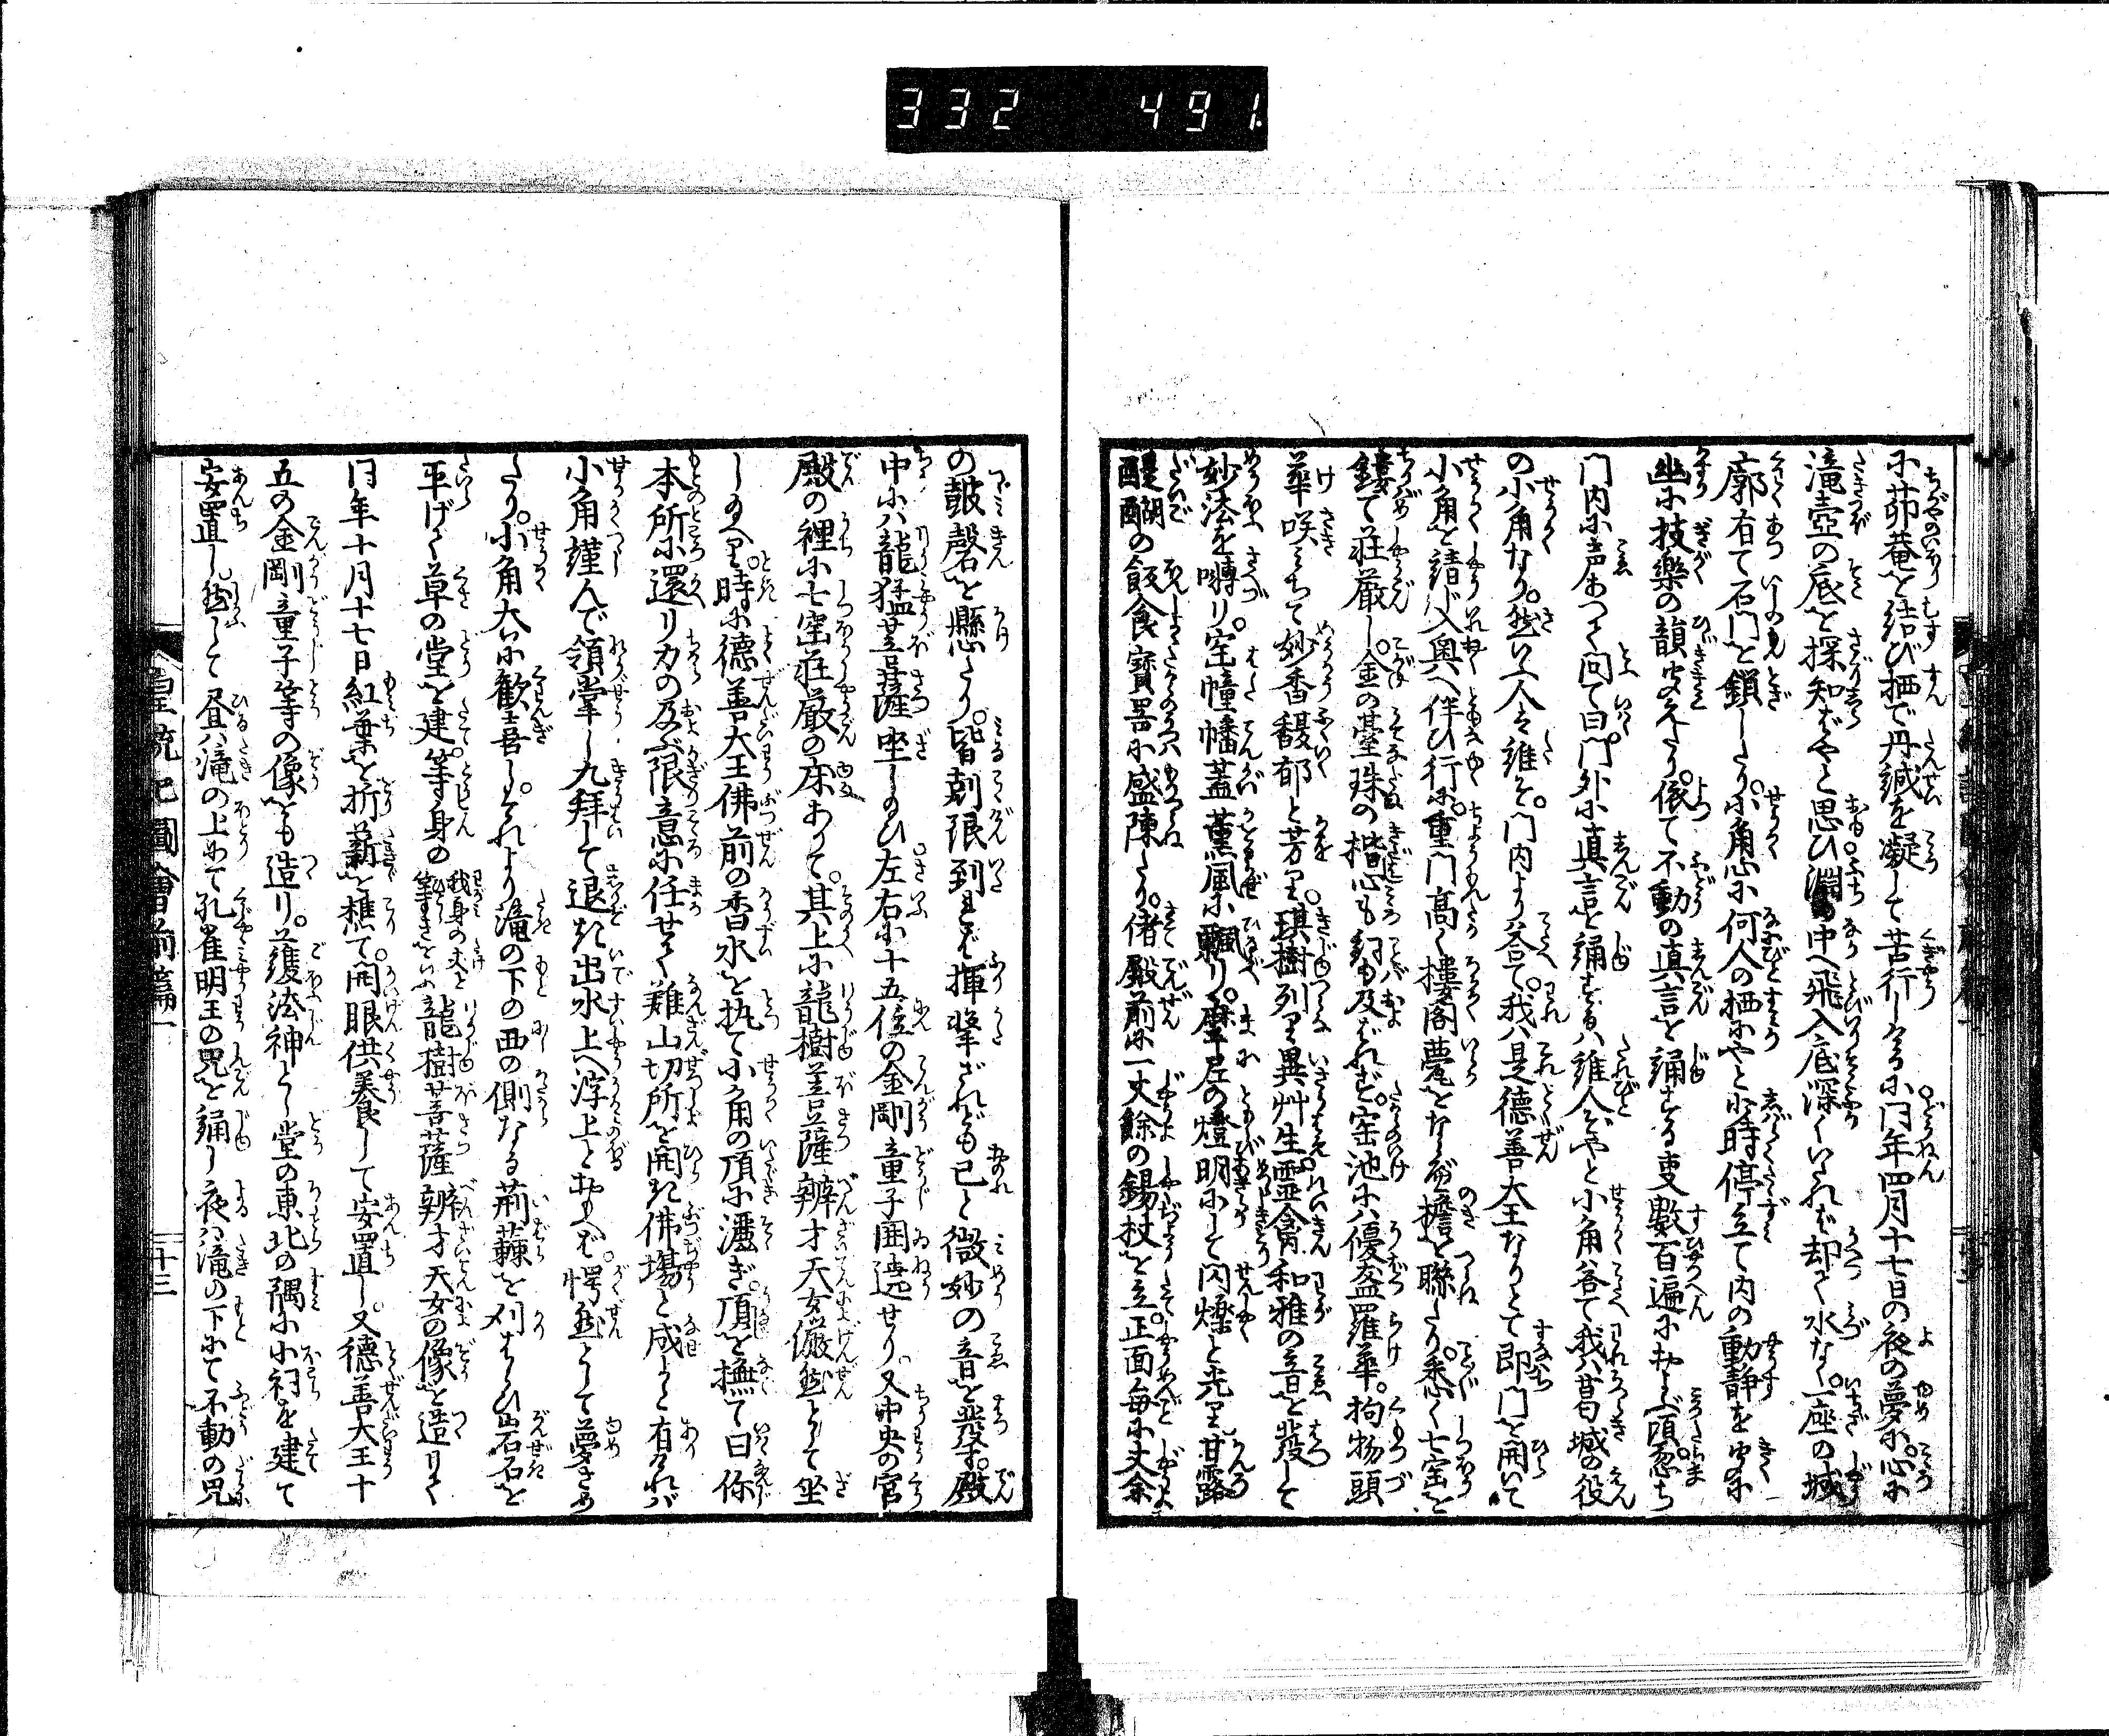 332 491
に茆菴を結び栖で丹誠を凝して苦行しけるに同年四月十七日の夜の夢に心に
滝壺の底を探知ばやと思ひ淵中へ飛入底深くいれば却て水なく一座の城
廓有て石門を鎖したり小角心に何人の栖にやと少時停立て内の動静を聞に
幽に技楽の韻聞えたり依て不動の真言を誦する事数百遍におよぶ頃忽ち
門内に声あつて問て曰門外に真言を誦するハ誰人ぞやと小角答て我ハ葛城の役
の小角なり然いふ人は誰ぞ門内より答て我ハ是徳善大王なりとて即門を開いて
小角を請じ入奥へ伴ひ行に重門高く楼閣甍をならべ檐を聯たり悉く七宝を
鏤て荘厳し金の臺珠の楷心も詞も及ばれず宝池にハ優盋羅華拘物頭
華咲みちて妙香馥郁と芳り琪樹列り異艸生霊禽和雅の音を発して
妙法を囀り宝幢幡蓋薫風に飜り摩尼の燈明にして閃爍と光り甘露
醍醐の飯食寶器に盛陳たり偖殿前に一丈餘の錫杖を立正面毎に丈余
の皷磬を懸たり皆剋限到れば揮撃ざれども己と微妙の音を發す殿
中にハ龍猛菩薩坐し給ひ左右に十五位の金剛童子囲遶せり又中央の宮
殿の裡に七宝荘厳の床ありて其上に龍樹菩薩辨才天女儼然として坐
し給へり時に徳善大王佛前の香水を執て小角の頂に灑ぎ頂を撫て曰你
本所に還り力の及ぶ限意に任せて難山切所を開き佛場と成よと有ければ
小角謹んで領掌し九拜して退き出水上へ浮上とおもへば愕然として夢さめ
たり小角大に歓喜しそれより滝の下の西の側なる荊蕀を刈はらひ岩石を
平げて草の堂を建等身の我身のたけと等きをいふ龍樹菩薩辨才天女の像を造りて
同年十月十七日紅葉を折薪を樵て開眼供養して安置し又徳善大王十
五の金剛童子等の像をも造り護法神とし堂の東北の隅に小祠を建て
安置し給ふ然して昼ハ滝の上にて孔雀明王の咒を誦し夜ハ滝の下にて不動の咒
皇統記圖會前篇一
十三